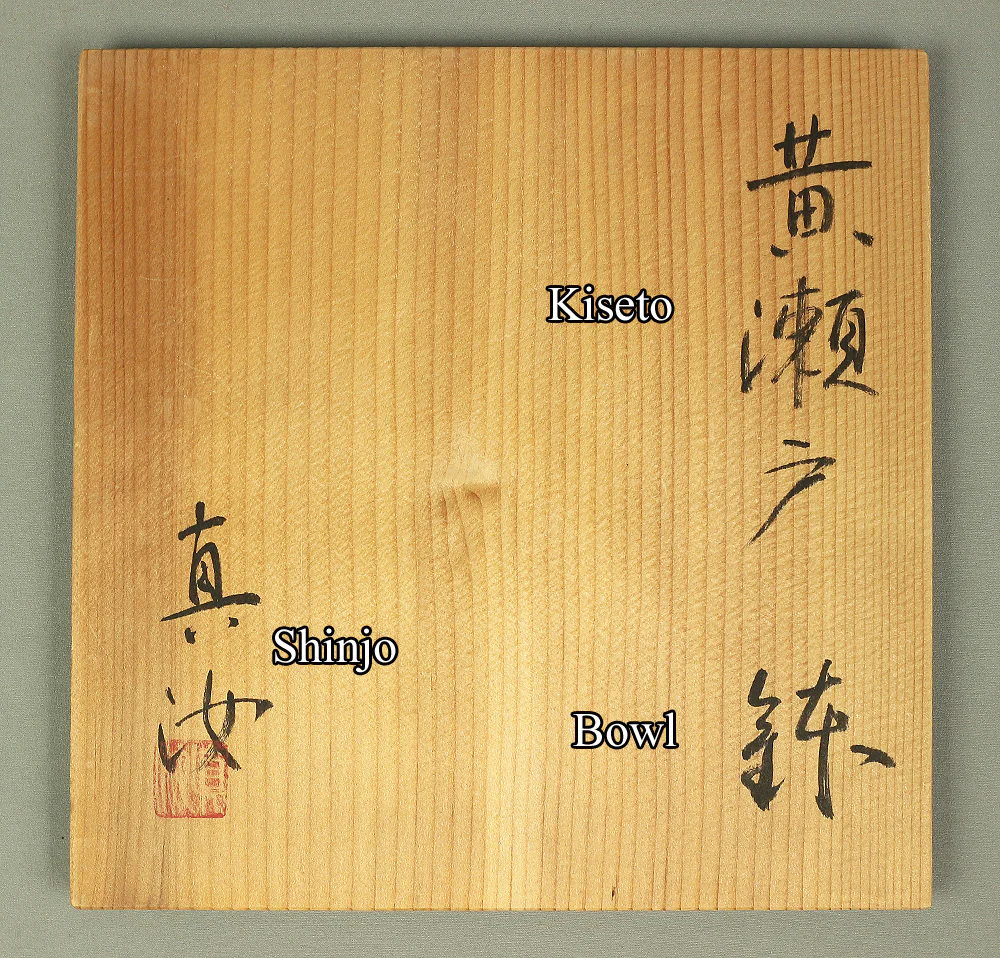 黄瀬戸 鉢
真汝
Kiseto
Shinjo
Bowl